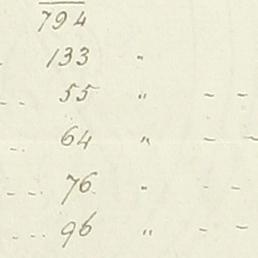 794
133 "
55 " - -
64 " - -
76 " - -
96 " - -